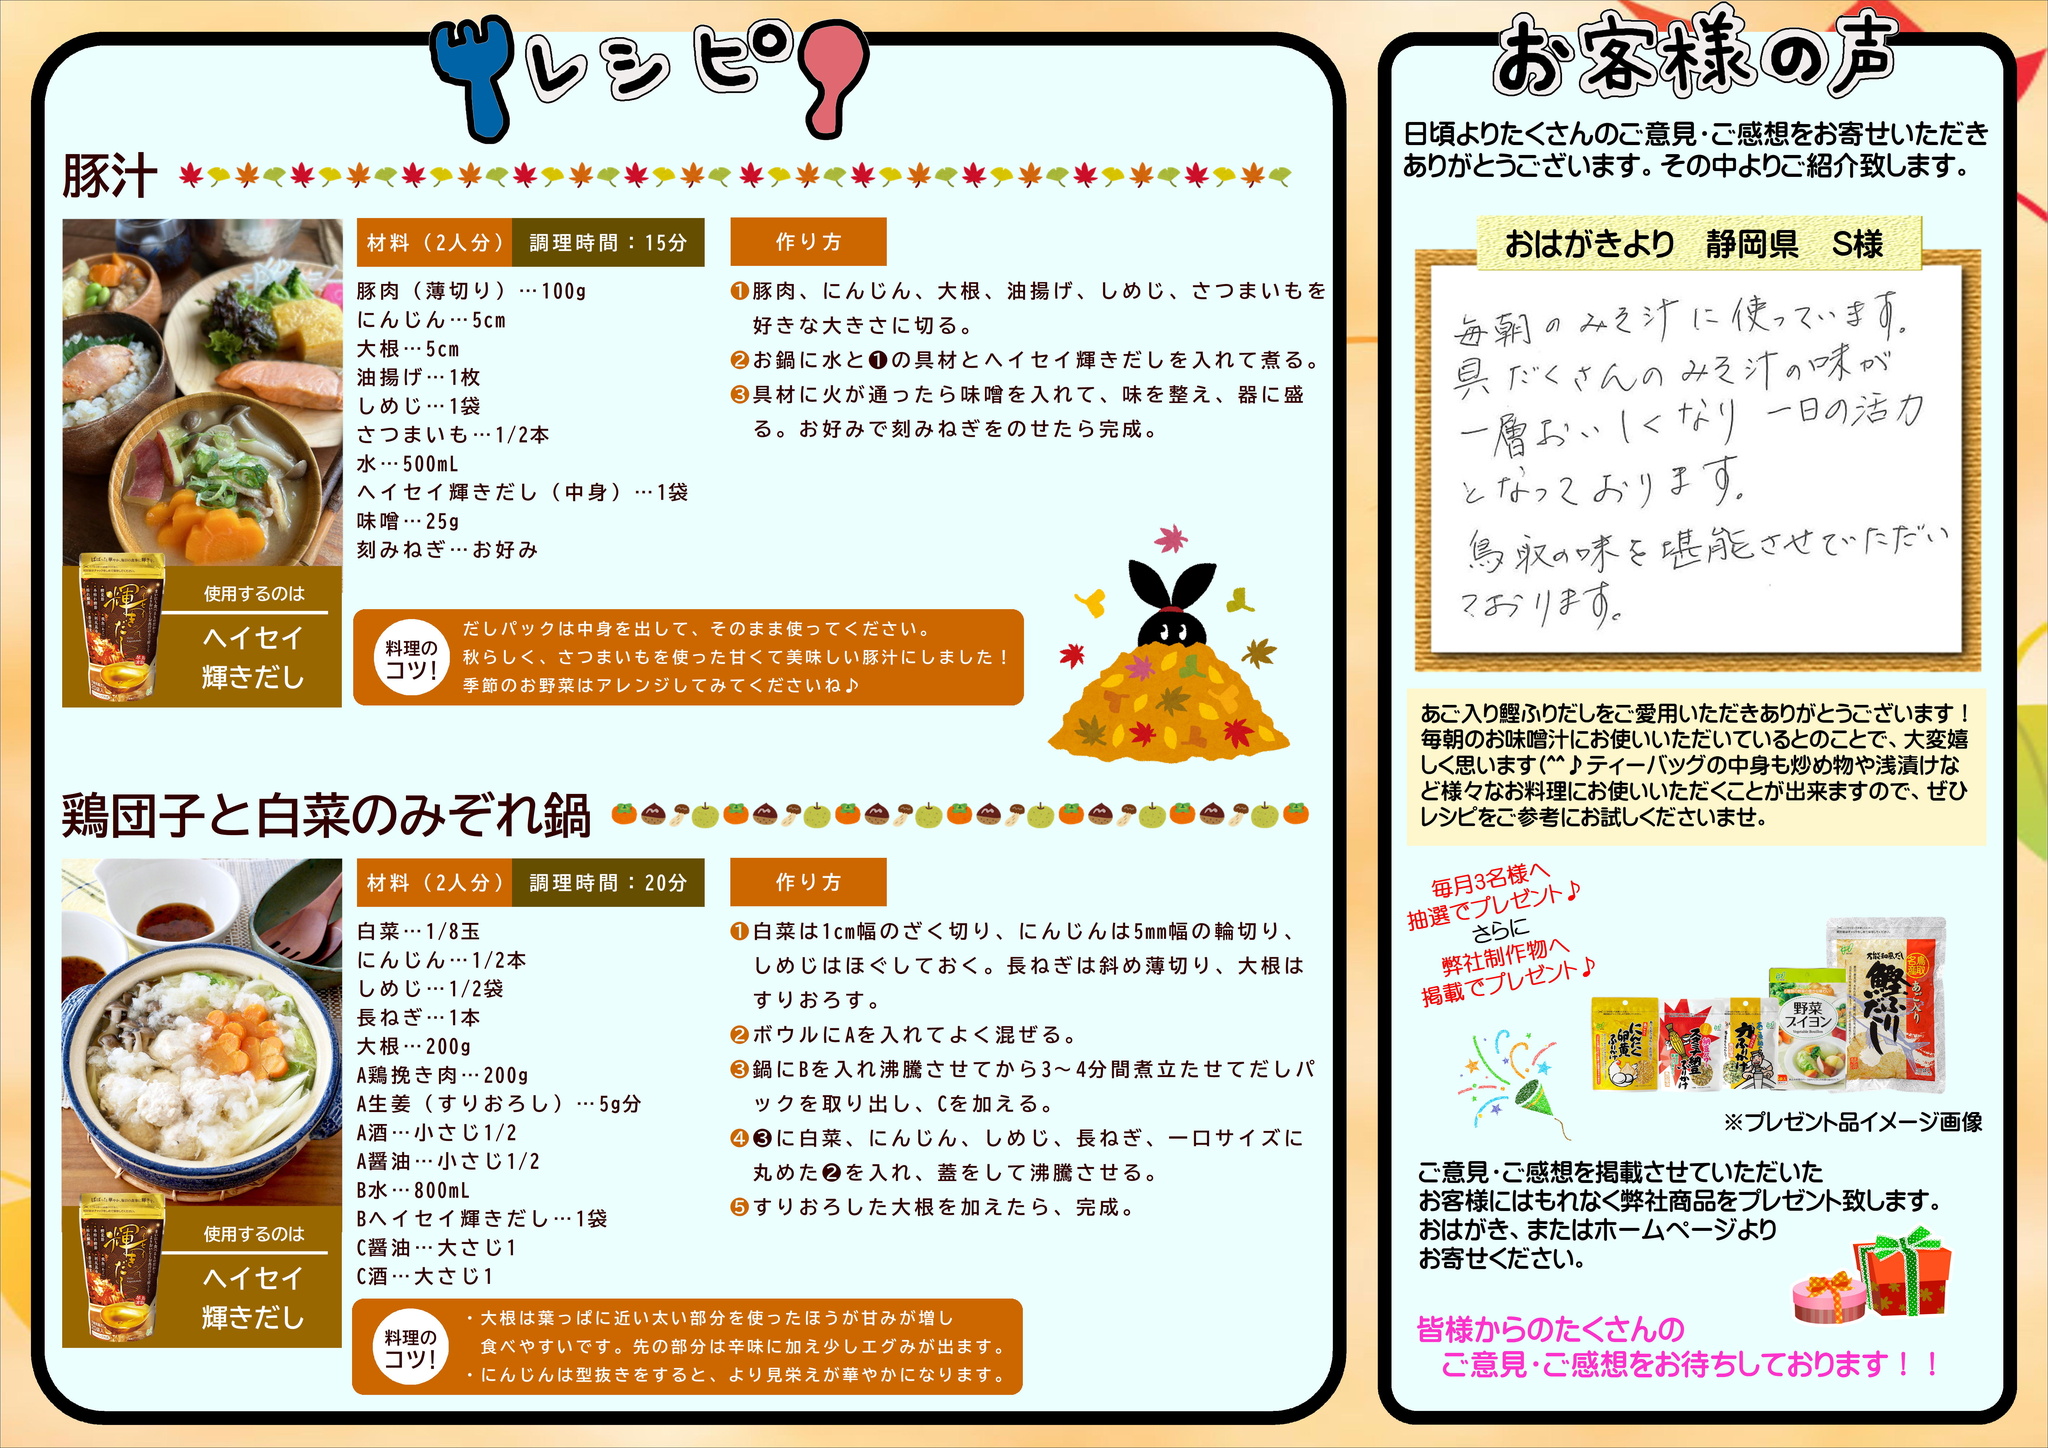 レシピ
豚汁
材料（2人分）
調理時間：15分
豚肉（薄切り）…100g
にんじん…5cm
大根…5cm
油揚げ…1枚
しめじ…1袋
さつまいも…1/2本
水…500mL
ヘイセイ輝きだし（中身）…1袋
味噌…25g
刻みねぎ…お好み
作り方
❶豚肉、にんじん、大根、油揚げ、しめじ、さつまいもを
好きな大きさに切る。
❷お鍋に水と❶の具材とヘイセイ輝きだしを入れて煮る。
❸具材に火が通ったら味噌を入れて、味を整え、器に盛
る。お好みで刻みねぎをのせたら完成。
輝きだし
使用するのは
ヘイセイ
輝きだし
料理の
コツ！
だしパックは中身を出して、そのまま使ってください。
秋らしく、さつまいもを使った甘くて美味しい豚汁にしました！
季節のお野菜はアレンジしてみてくださいね♪
鶏団子と白菜のみぞれ鍋
材料（2人分）
調理時間：20分
白菜…1/8玉
にんじん…1/2本
しめじ…1/2袋
長ねぎ…1本
大根…200g
A鶏挽き肉…200g
A生姜（すりおろし）…5g分
A酒…小さじ1/2
A醤油…小さじ1/2
B水…800mL
Bヘイセイ輝きだし…1袋
C醤油…大さじ1
C酒…大さじ1
作り方
❶白菜は1cm幅のざく切り、にんじんは5mm幅の輪切り、
しめじはほぐしておく。長ねぎは斜め薄切り、大根は
すりおろす。
❷ボウルにAを入れてよく混ぜる。
❸鍋にBを入れ沸騰させてから3～4分間煮立たせてだしパ
ックを取り出し、Cを加える。
❹❸に白菜、にんじん、しめじ、長ねぎ、一口サイズに
丸めた❷を入れ、蓋をして沸騰させる。
❺すりおろした大根を加えたら、完成。
輝きだし
使用するのは
ヘイセイ
輝きだし
料理の
コツ！
・大根は葉っぱに近い太い部分を使ったほうが甘みが増し
食べやすいです。先の部分は辛味に加え少しエグみが出ます。
・にんじんは型抜きをすると、より見栄えが華やかになります。
お客様の声
日頃よりたくさんのご意見・ご感想をお寄せいただき
ありがとうございます。その中よりご紹介致します。
おはがきより　静岡県　S様
毎朝のみそ汁に使っています。
具だくさんのみそ汁の味が
一層おいしくなり 一日の活力
となっております。
鳥取の味を堪能させていただい
ております。
あご入り鰹ふりだしをご愛用いただきありがとうございます！
毎朝のお味噌汁にお使いいただいているとのことで、大変嬉
しく思います(^^♪ティーバッグの中身も炒め物や浅漬けな
ど様々なお料理にお使いいただくことが出来ますので、ぜひ
レシピをご参考にお試しくださいませ。
毎月3名様へ
抽選でプレゼント♪
さらに
弊社制作物へ
掲載でプレゼント♪
にんにく
卵黄
ふりかけ
野菜
ブイヨン
あご入り
鰹ふりだし
※プレゼント品イメージ画像
ご意見・ご感想を掲載させていただいた
お客様にはもれなく弊社商品をプレゼント致します。
おはがき、またはホームページより
お寄せください。
皆様からのたくさんの
ご意見・ご感想をお待ちしております！！